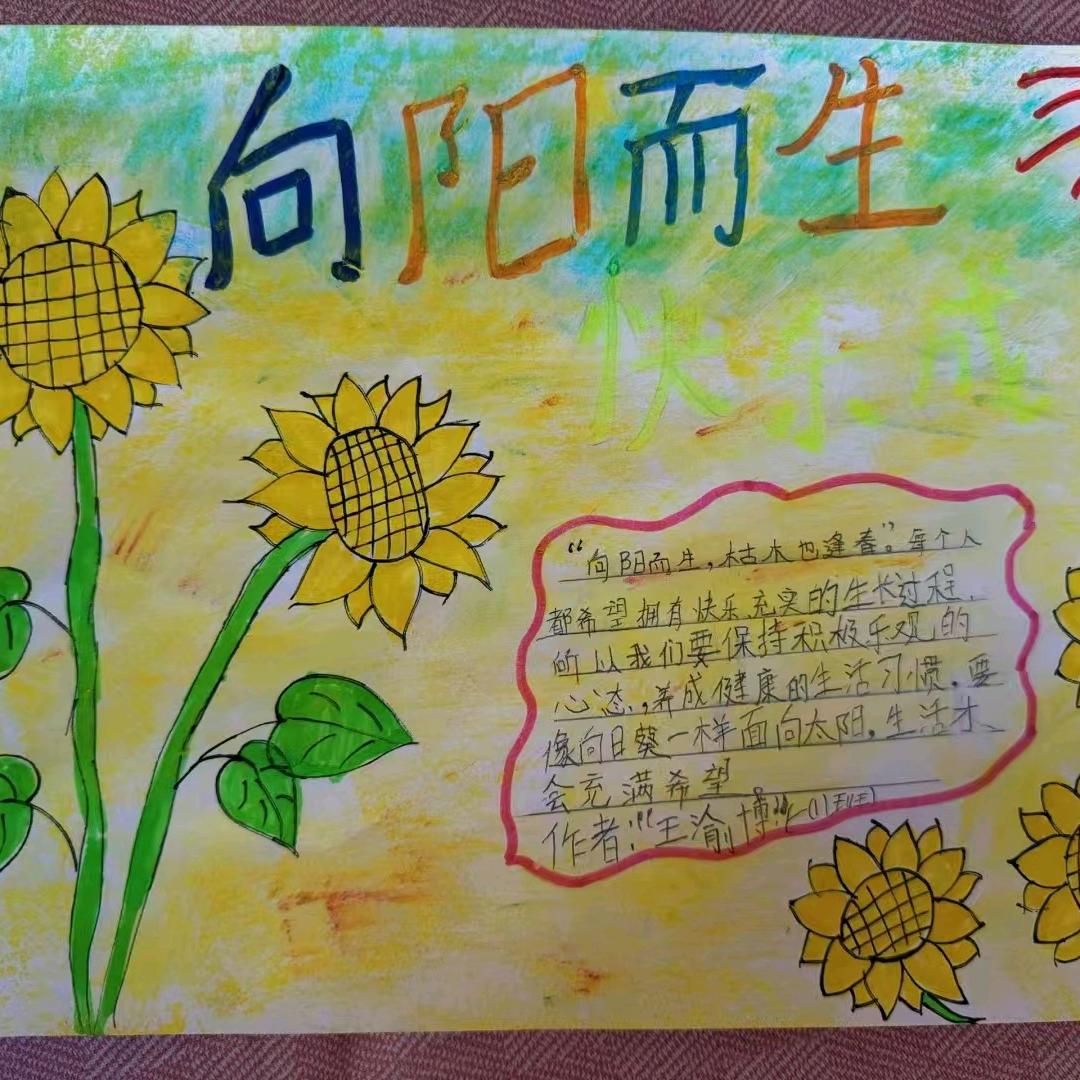 向阳而生
快乐成
“向阳而生，枯木也逢春”。每个人
都希望拥有快乐充实的生长过程，
所以我们要保持积极乐观的
心态，养成健康的生活习惯。要
像向日葵一样面向太阳。生活才
会充满希望。
作者：“王渝博”